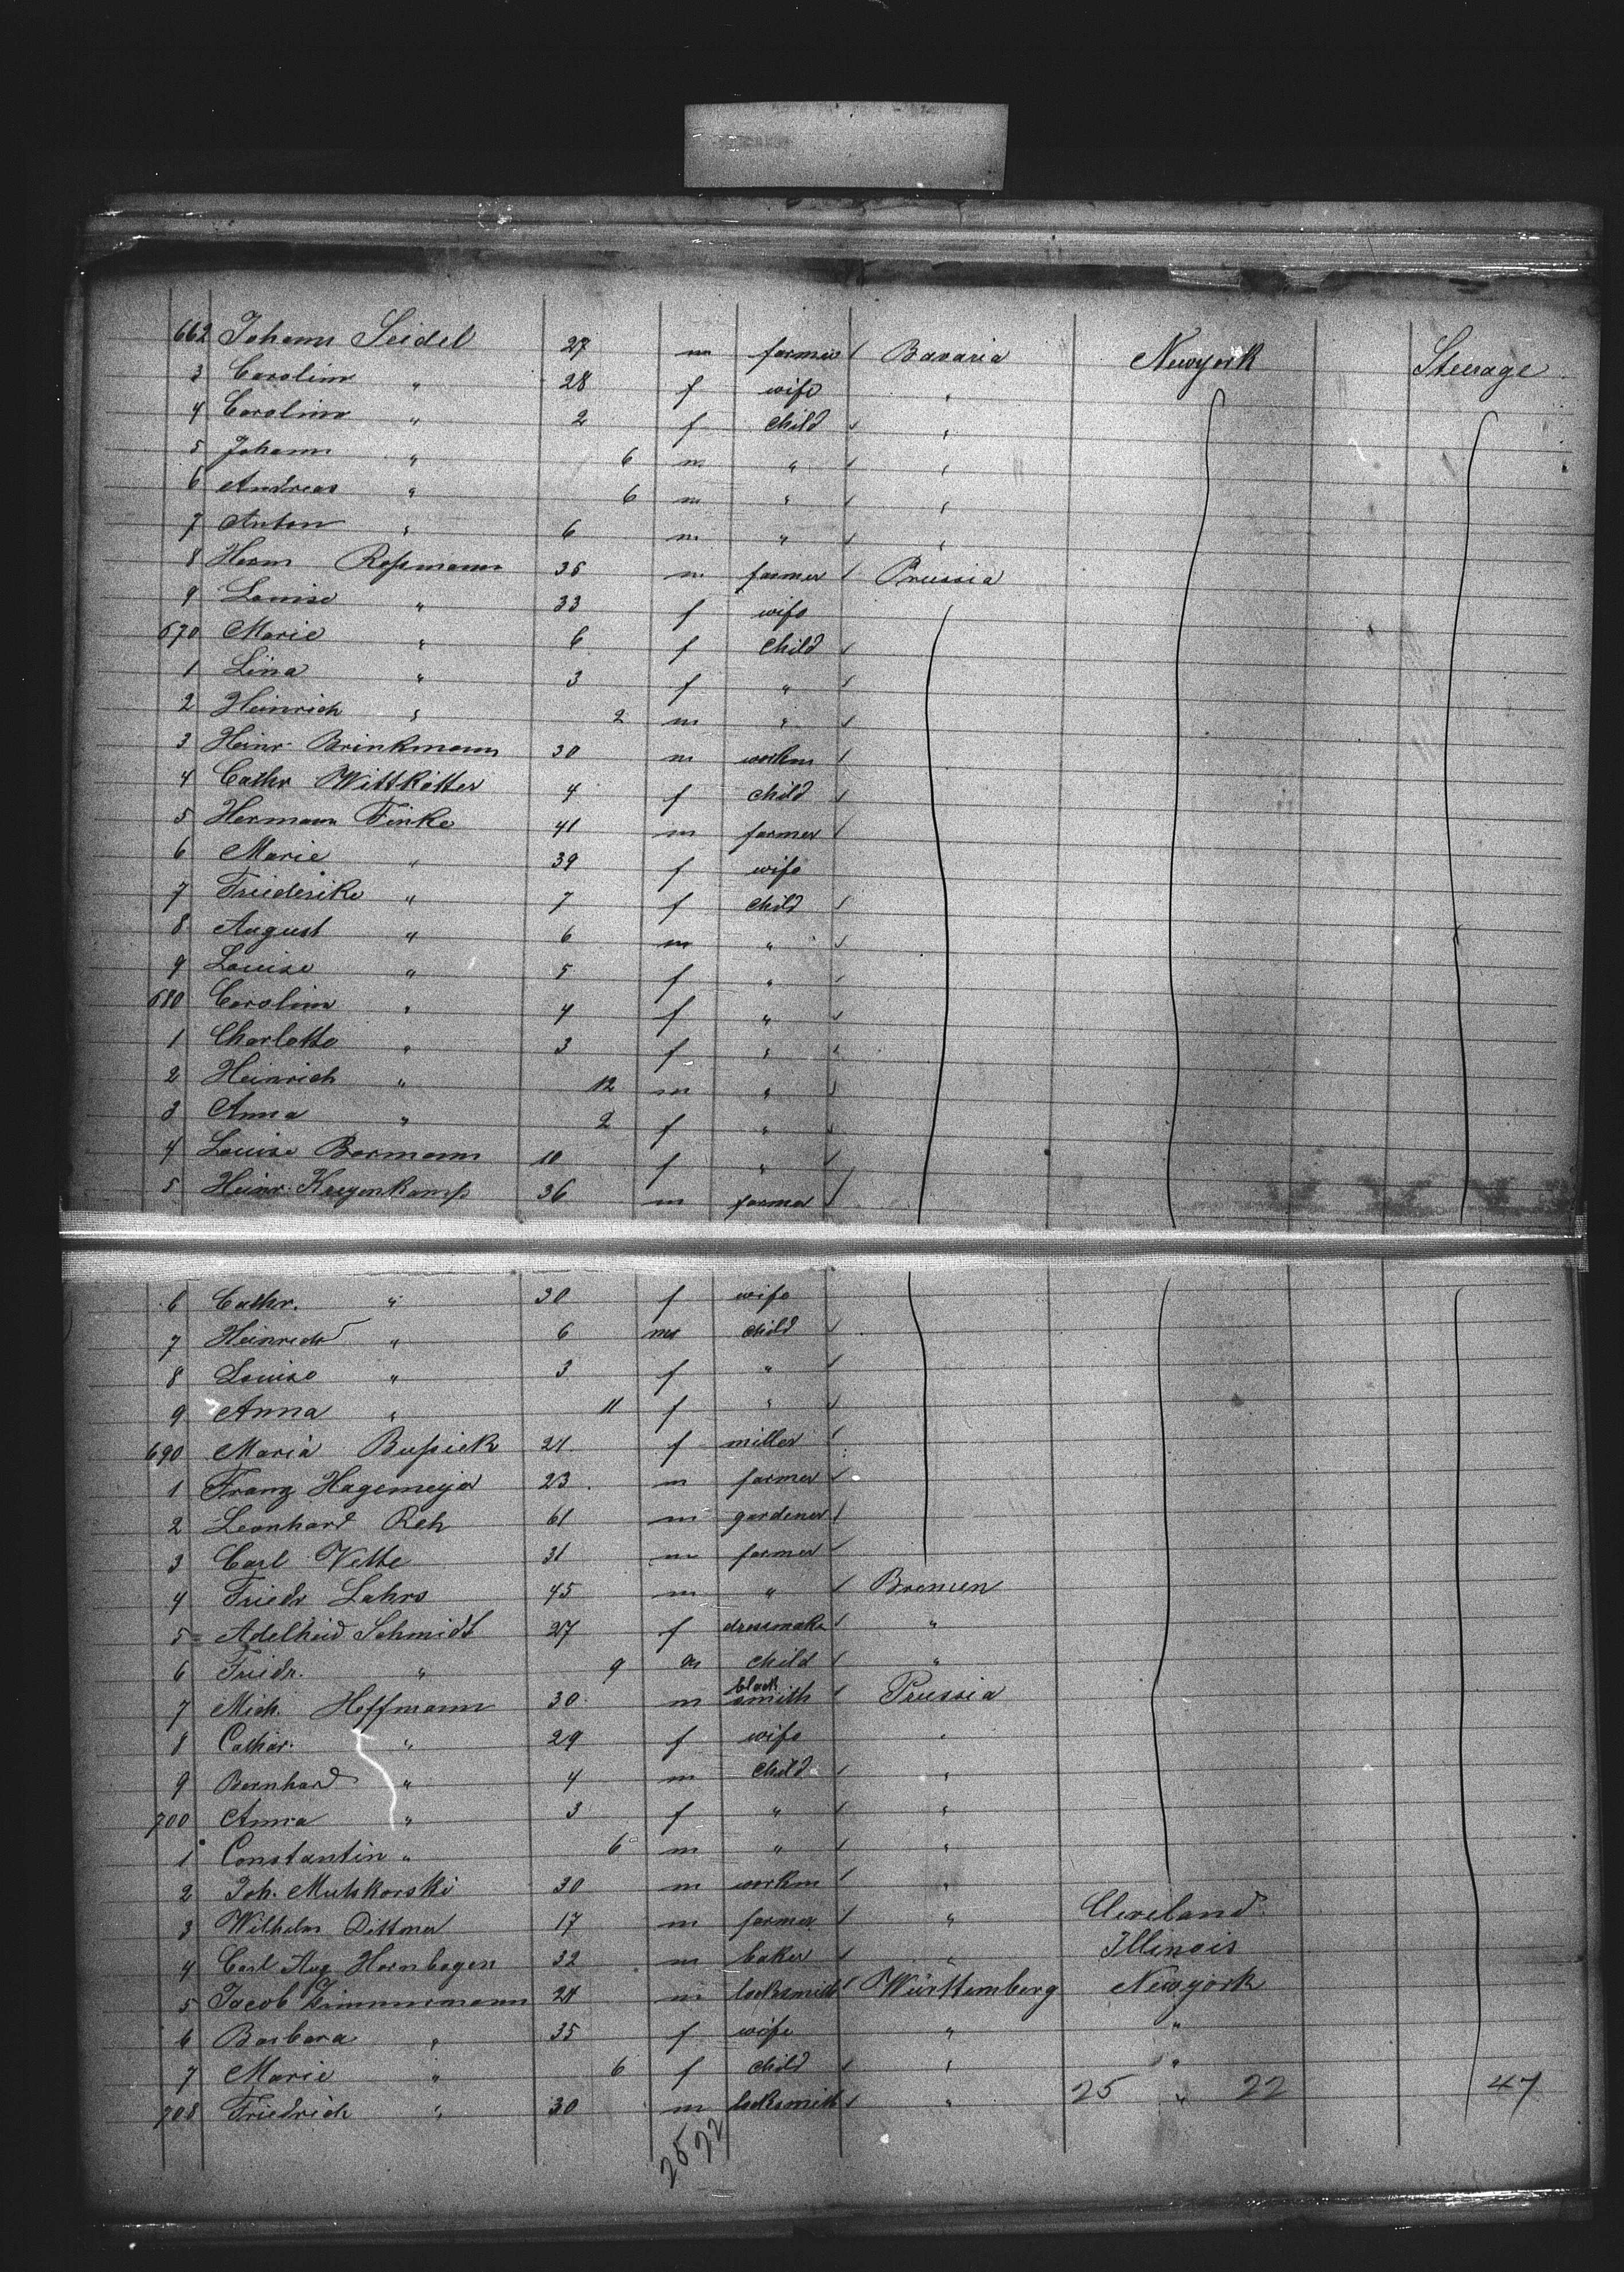 662 Johann Seidel 27 m farmer Bavaria Newyork Steerage
3 Carolina " 28 f wife "
4 Carolina " 2 f child "
5 Johann " 6 m " "
6 Andreas " 6 m " "
7 Anton " 6 m " "
8 Herm Roßmann 36 m farmer Prussia
9 Louise " 33 f wife
670 Marie " 6 f child
1 Lina " 3 f "
2 Heinrich " 2 m "
3 Heinr. Brinkmann 30 m workm
4 Cathr Wittkötter 4 f child
5 Hermann Finke 41 m farmer
6 Marie " 39 f wife
7 Friederike " 7 f child
8 August " 6 m "
9 Louise " 5 f "
680 Carolina " 4 f "
1 Charlotte " 3 f "
2 Heinrich " 12 m "
3 Anna " 2 f "
4 Louise Bormann 10 f "
5 Heinr. 36 m farmer
6 Cathr. " 30 f wife
7 Heinrich " 6 m child
8 Louise " 3 f "
9 Anna " 11 f "
690 Maria Bußiek 21 f miller
1 Franz Hagemeyer 23 m farmer
2 Leonhard Reh 61 m gardener
3 Carl Vette 31 m farmer
4 Friedr Lahrs 45 m " Bremen
5 Adelheid Schmidt 27 f dressmaker "
6 Friedr. " 9 m child "
7 Mich. Hoffmann 30 m black smith Prussia
8 Cathar. " 29 f wife "
9 Bernhard " 4 m child "
700 Anna " 3 f " "
1 Constantin " 6 m " "
2 Joh. Mutskorski 30 m workm "
3 Wilhelm Dittmer 17 m farmer " Cleveland
4 Carl Aug Hornbogen 32 m baker " Illinois
5 Jacob Zimmermann 24 m locksmith Württemberg Newyork
6 Barbara " 35 f wife " "
7 Marie " 6 f child " "
708 Friedrich " 30 m locksmith " 25 " 22 47
25 22